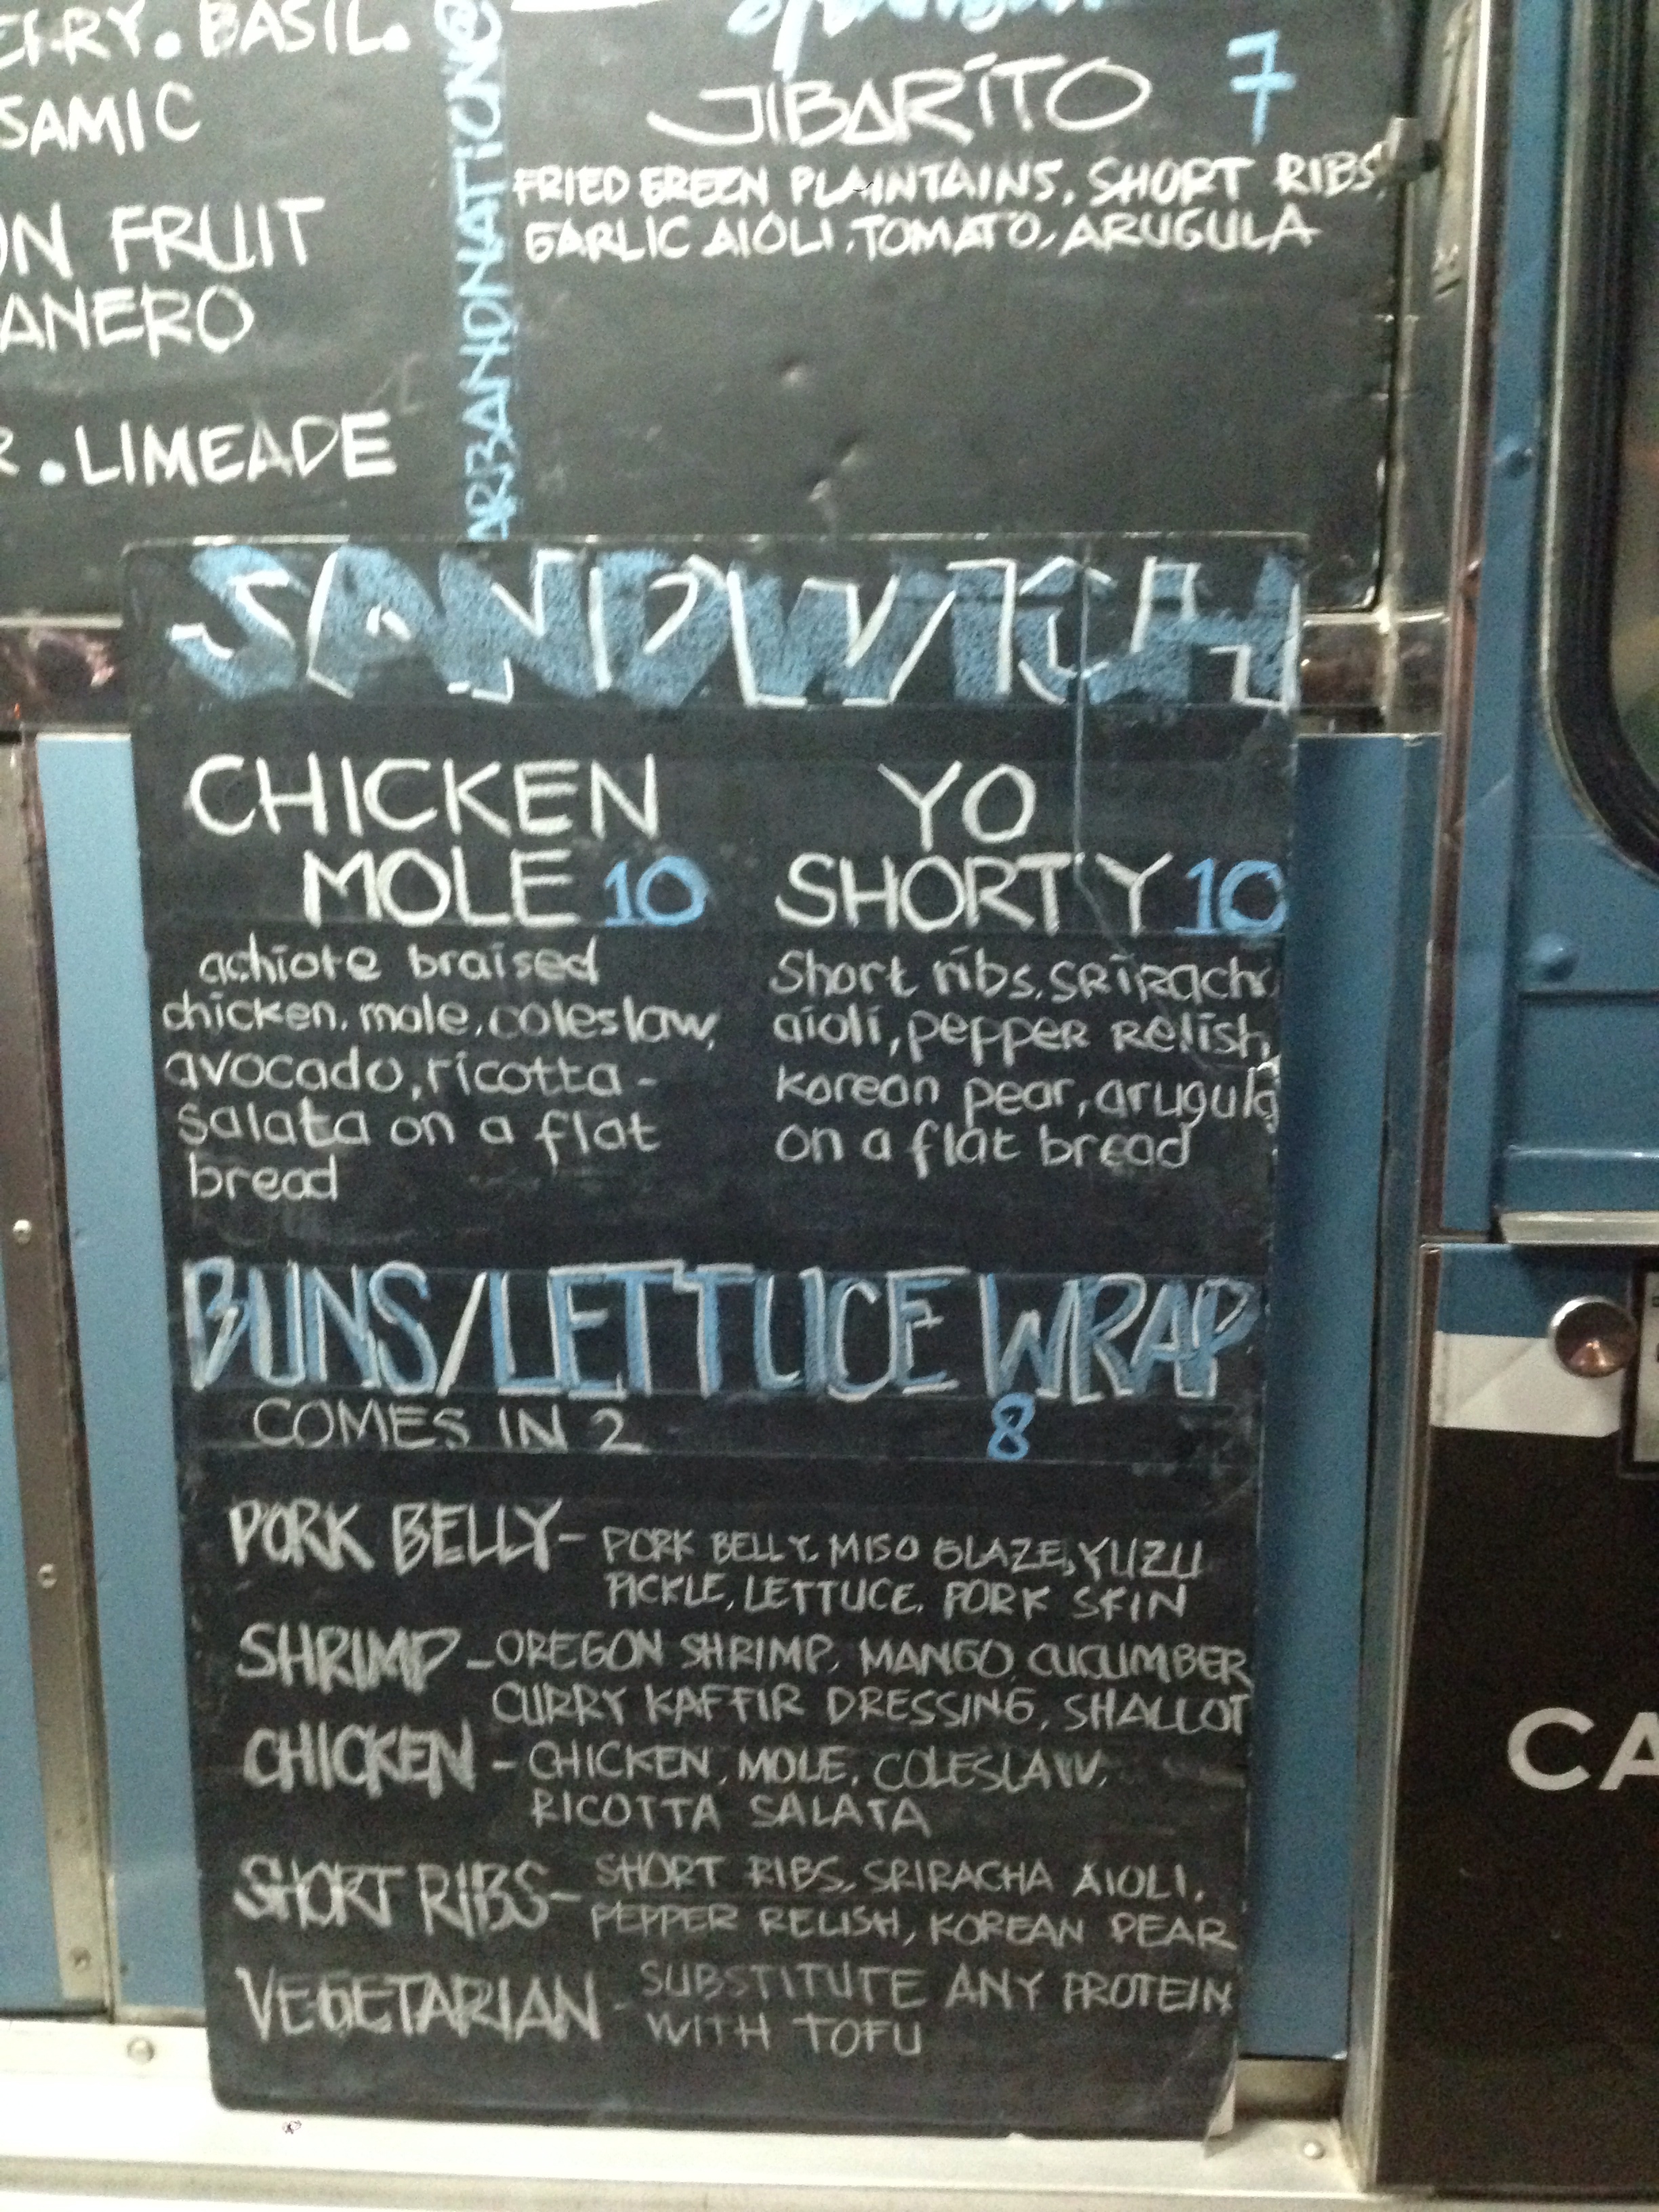 BASIL.
SAMIC
FRUIT
ANERO
. LIMEADE
JIBARITO 7
FRIED GREEN PLAINTAINS, SHORT RIBS,
GARLIC AIOLI, TOMATO, ARUGULA
SANDWICH
CHICKEN
MOLE 10
achiote braised
chicken, mole, coleslaw,
avocado, ricotta-
salata on a flat
bread
YO
SHORTY 10
Short ribs, SRiRacha
aioli, pepper Relish,
korean pear, arugula
on a flat bread
BUNS/LETTUCE WRAP
COMES IN 2 8
PORK BELLY- PORK BELLY, MISO GLAZE, YUZU
PICKLE, LETTUCE, PORK SKIN
SHRIMP - OREGON SHRIMP, MANGO, CUCUMBER
CURRY KAFFIR DRESSING, SHALLOT
CHICKEN - CHICKEN, MOLE, COLESLAW,
RICOTTA SALATA
SHORT RIBS- SHORT RIBS, SRIRACHA AIOLI,
PEPPER RELISH, KOREAN PEAR
VEGETARIAN - SUBSTITUTE ANY PROTEIN
WITH TOFU
CA